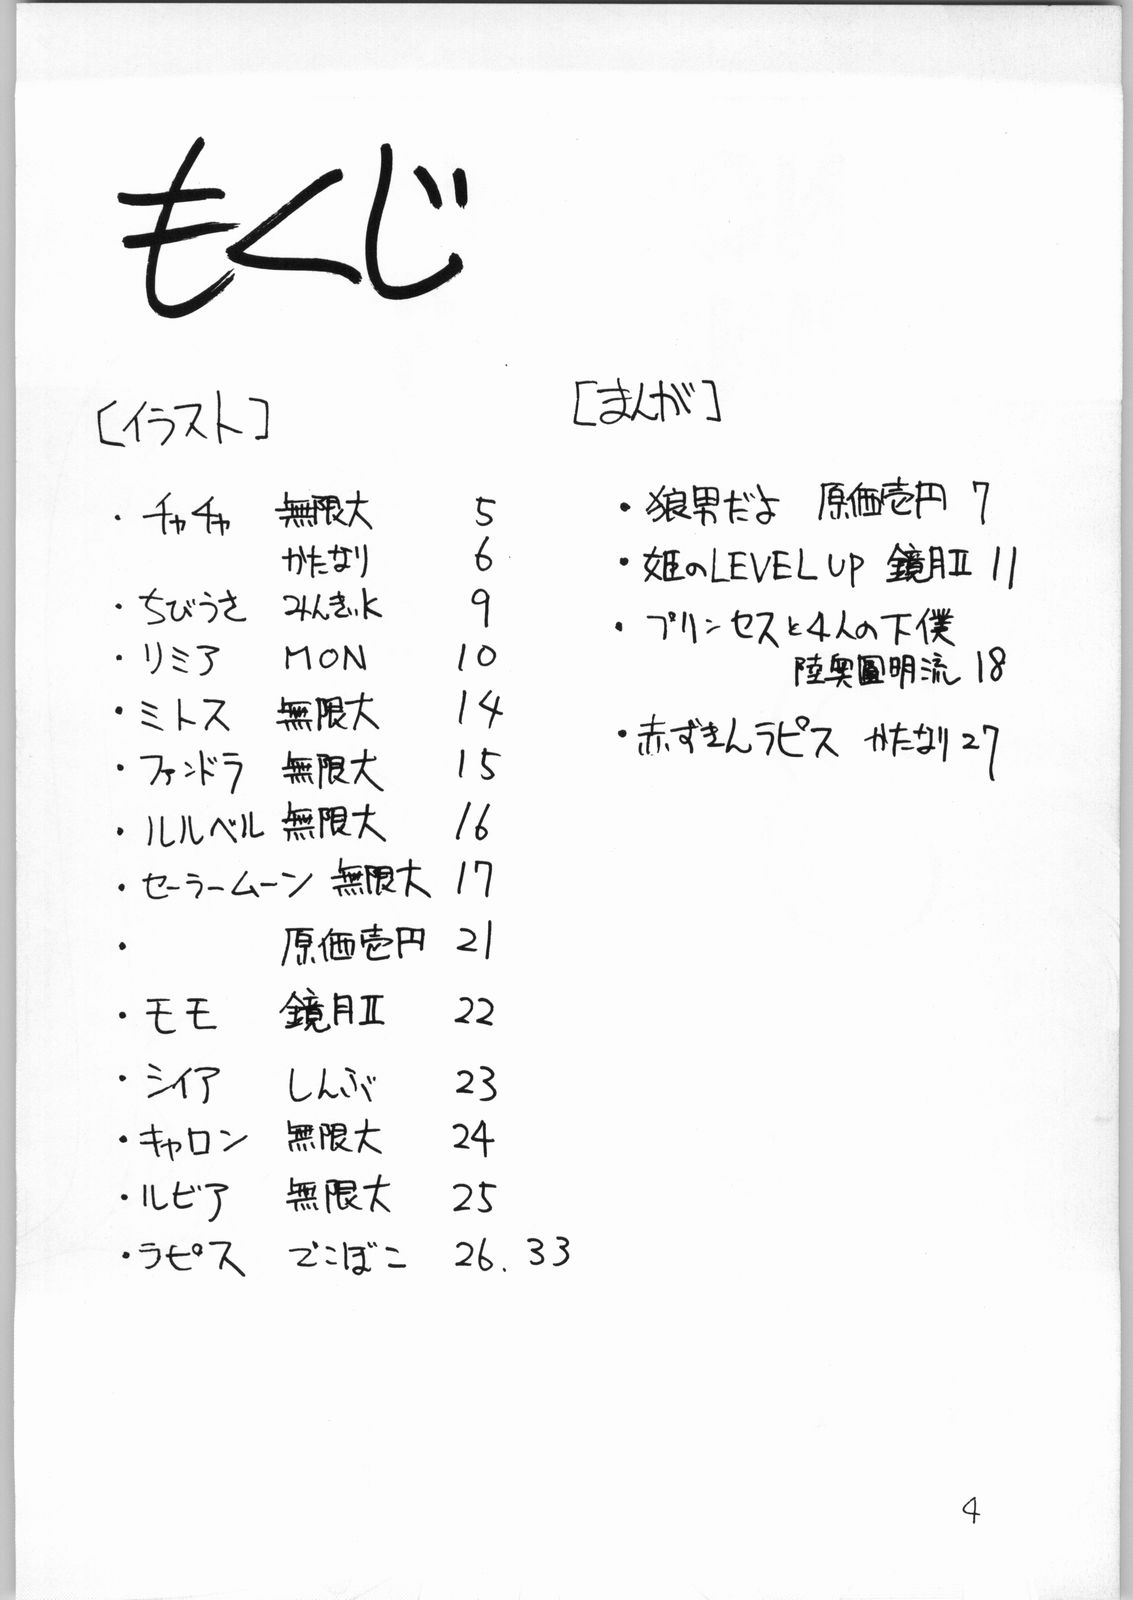 もくじ
[イラスト]
・チャチャ 無限大 5
かたなり 6
・ちびうさ みんきぃK 9
・リミア MON 10
・ミトス 無限大 14
・ファンドラ 無限大 15
・ルルベル 無限大 16
・セーラームーン 無限大 17
・ 原価壱円 21
・モモ 鏡月Ⅱ 22
・シイア しんぶ 23
・キャロン 無限大 24
・ルビア 無限大 25
・ラピス でこぼこ 26.33
[まんが]
・狼男だよ 原価壱円 7
・姫のLEVEL UP 鏡月Ⅱ 11
・プリンセスと4人の下僕
陸奥圓明流 18
・赤ずきんラピス かたなり 27
4